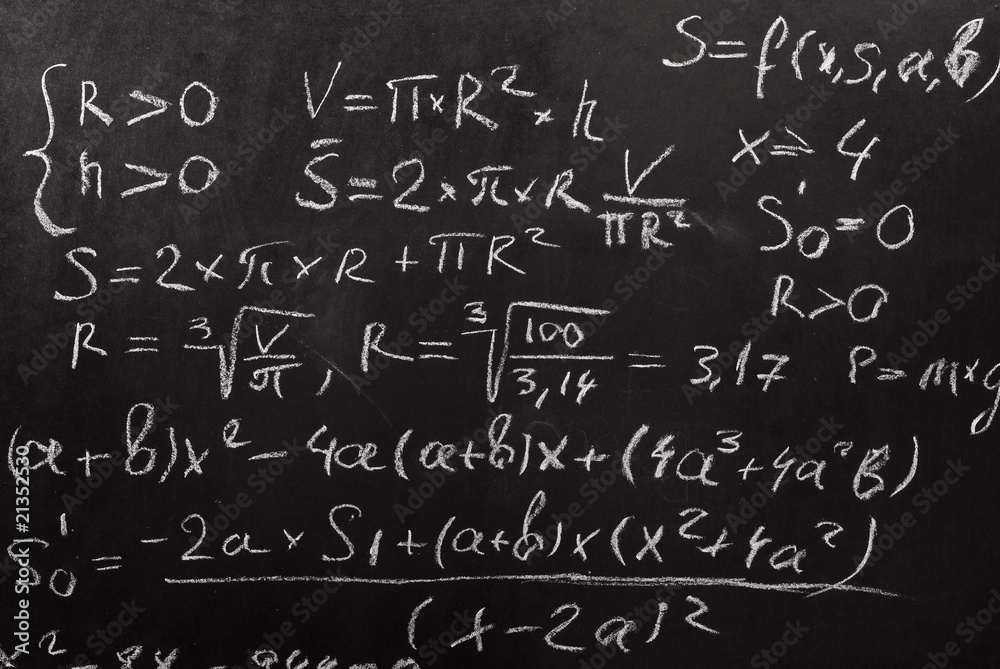 S=f(x,S,a,b)
{ R>0
h>0
V=π×R²×h
x=> 4
S̄=2×π×R V/πR²
S'₀=0
S=2×π×R+πR²
R>0
R=³√(V/π), R=³√(100/3,14)=3,17
P=m×g
(a+b)x²-4a(a+b)x+(4a³+4a²b)
S'₀=(-2a×S₁+(a+b)x(x²+4a²))/(x-2a)²
Adobe Stock | #21352530